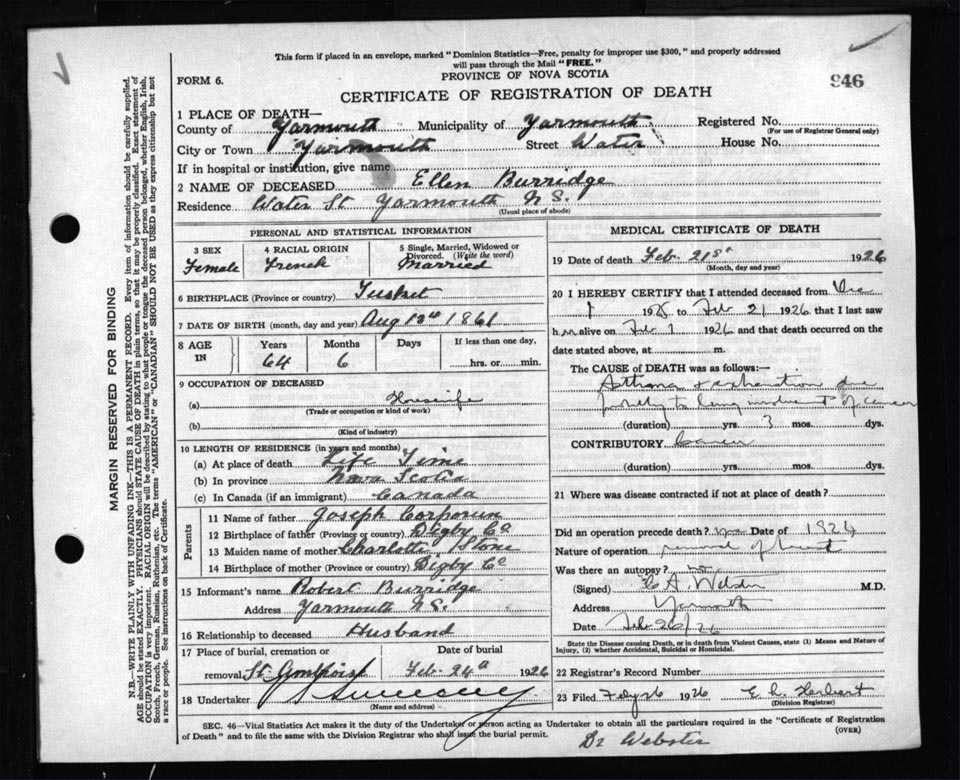 This form if placed in an envelope, marked "Dominion Statistics—Free, penalty for improper use $300," and properly addressed
will pass through the Mail "FREE."
FORM 6.
PROVINCE OF NOVA SCOTIA
946
CERTIFICATE OF REGISTRATION OF DEATH
1 PLACE OF DEATH—
County of Yarmouth Municipality of Yarmouth Registered No.
(For use of Registrar General only)
City or Town Yarmouth Street Water House No.
If in hospital or institution, give name
2 NAME OF DECEASED Ellen Burridge
Residence Water St Yarmouth N.S.
(Usual place of abode)
PERSONAL AND STATISTICAL INFORMATION
3 SEX Female
4 RACIAL ORIGIN French
5 Single, Married, Widowed or Divorced. (Write the word) Married
6 BIRTHPLACE (Province or country) Tusket
7 DATE OF BIRTH (month, day and year) Aug 1861
8 AGE IN
Years Months Days If less than one day,
64 6 hrs. or min.
9 OCCUPATION OF DECEASED
(a) Housewife
(Trade or occupation or kind of work)
(b)
(Kind of industry)
10 LENGTH OF RESIDENCE (in years and months)
(a) At place of death Life Time
(b) In province Nova Scotia
(c) In Canada (if an immigrant) Canada
Parents
11 Name of father Joseph Corporun
12 Birthplace of father (Province or country) Digby Co
13 Maiden name of mother Charlotte Stone
14 Birthplace of mother (Province or country) Digby Co
15 Informant's name Robert Burridge
Address Yarmouth N.S.
16 Relationship to deceased Husband
17 Place of burial, cremation or Date of burial
removal St. Feb. 24th 1926
18 Undertaker
(Name and address)
MEDICAL CERTIFICATE OF DEATH
19 Date of death Feb. 21st 1926
(Month, day and year)
20 I HEREBY CERTIFY that I attended deceased from Dec
1925 to Feb 21 1926 that I last saw
h alive on Feb 1926 and that death occurred on
date stated above, at m.
The CAUSE of DEATH was as follows:—
Asthma & exhaustion due
partly to lung involvement of cancer
(duration) yrs. 3 mos. dys.
CONTRIBUTORY Cancer
(duration) yrs. mos. dys.
21 Where was disease contracted if not at place of death?
Did an operation precede death? yes Date of 1924
Nature of operation removal of breast
Was there an autopsy? no
(Signed) A Webster M.D.
Address Yarmouth
Date Feb 26/26
State the Disease causing Death, or in death from Violent Causes, state (1) Means and Nature of
Injury, (2) whether Accidental, Suicidal or Homicidal.
22 Registrar's Record Number
23 Filed Feby 26 1926 Herbert
(Division Registrar)
SEC. 46—Vital Statistics Act makes it the duty of the Undertaker or person acting as Undertaker to obtain all the particulars required in the "Certificate of Registration
of Death" and to file the same with the Division Registrar who shall issue the burial permit.
(OVER)
Dr Webster
MARGIN RESERVED FOR BINDING
N.B.—WRITE PLAINLY WITH UNFADING INK—THIS IS A PERMANENT RECORD. Every item of information should be carefully supplied.
AGE should be stated EXACTLY. PHYSICIANS should STATE CAUSE OF DEATH in plain terms, so that it may be properly classified. Exact statement of
OCCUPATION is very important. RACIAL ORIGIN will be described by stating to what people or tongue the deceased person belonged, whether English, Irish,
Scotch, French, German, Russian, Ruthenian, etc. The terms "AMERICAN" or "CANADIAN" SHOULD NOT BE USED as they express citizenship but not
a race or people. See instructions on back of Certificate.